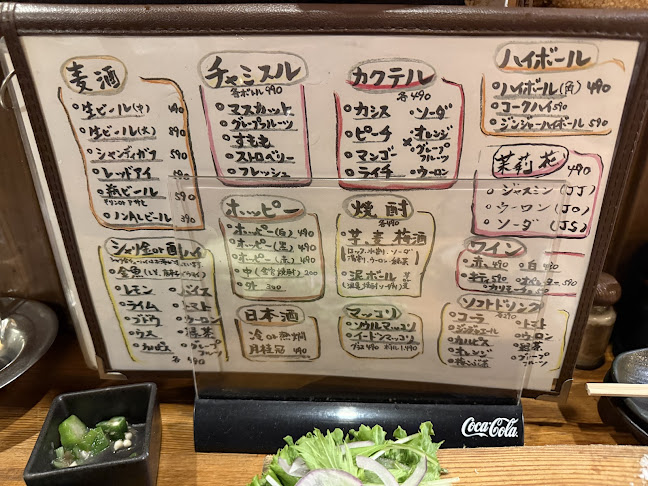 麦酒
生ビール(中) 490
生ビール(大) 890
シャンディガフ 590
レッドアイ 590
瓶ビール 590
ノンALビール 390
チャミスル
各ボトル 990
マスカット
グレープフルーツ
すもも
ストロベリー
フレッシュ
カクテル
各490
カシス
ピーチ
マンゴー
ライチ
ソーダ
オレンジ
グレープフルーツ
ウーロン
ハイボール
ハイボール(角) 490
コークハイ 590
ジンジャーハイボール 590
茉莉花
490
ジャスミン(JJ)
ウーロン(JO)
ソーダ(JS)
シャリ金or酎ハイ
金魚
レモン
ライム
ブドウ
ウメ
カルピス
バイス
トマト
ウーロン
緑茶
グレープフルーツ
各490
ホッピー
ホッピー(白) 490
ホッピー(黒) 490
ホッピー(赤) 490
中(金宮焼酎) 200
外 300
焼酎
各490
芋、麦、梅酒
泥ボール
ワイン
赤 490
白 490
日本酒
冷or熱燗
月桂冠 490
マッコリ
ソウルマッコリ
イードンマッコリ
グラス490 ボトル1,490
ソフトドリンク
各290
コーラ
ジンジャエール
カルピス
オレンジ
トマト
ウーロン
緑茶
グレープフルーツ
Coca-Cola